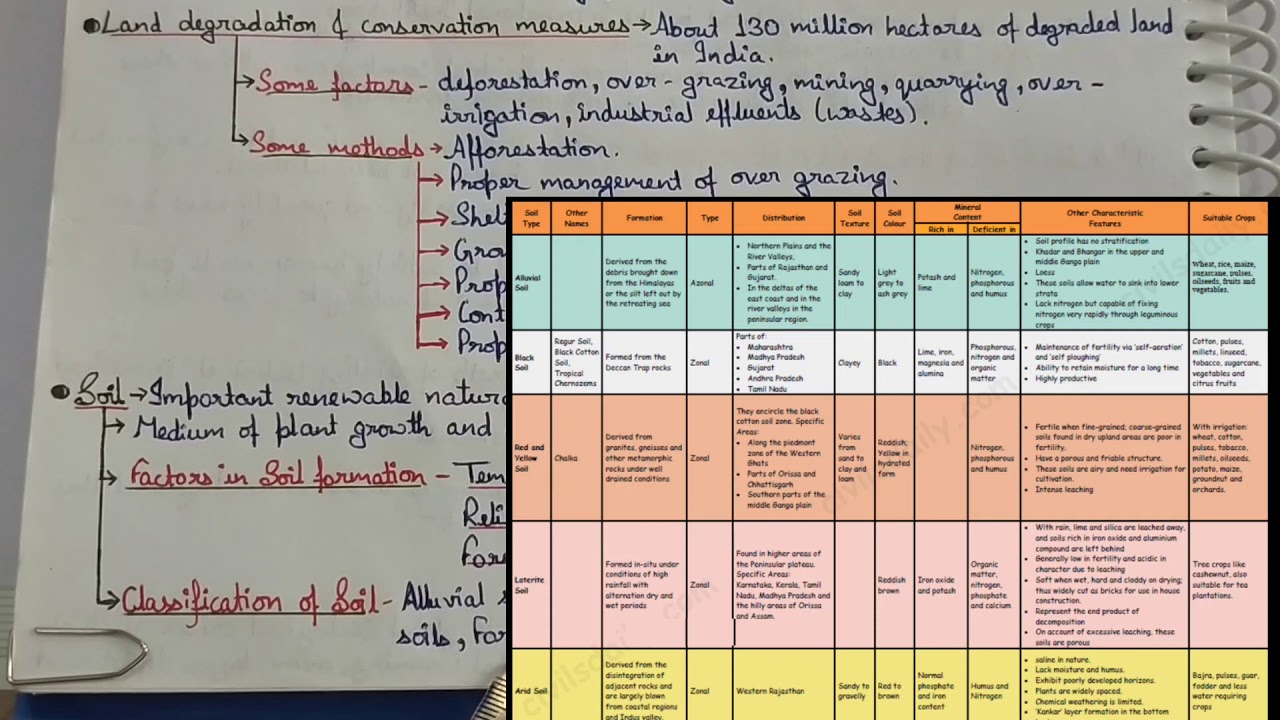 Land degradation & conservation measures → About 130 million hectares of degraded land
in India.
Some factors - deforestation, over-grazing, mining, quarrying, over-
irrigation, industrial effluents (wastes).
Some methods → Afforestation.
Proper management of over grazing.
Soil → Important renewable
Medium of plant growth and
Factors in Soil formation -
Classification of Soil - Alluvial
soils,
Soil Type
Other Names
Formation
Type
Distribution
Soil Texture
Soil Colour
Mineral Content
Rich in
Deficient in
Other Characteristic Features
Suitable Crops
Alluvial Soil
Derived from the
debris brought down
from the Himalayas
or the silt left out by
the retreating sea
Azonal
• Northern Plains and the
River Valleys,
• Parts of Rajasthan and
Gujarat.
• In the deltas of the
east coast and in the
river valleys in the
peninsular region.
Sandy
loam to
clay
Light
grey to
ash grey
Potash and
lime
Nitrogen,
phosphorous
and humus
• Soil profile has no stratification
• Khadar and Bhangar in the upper and
middle Ganga plain
• Loess
• These soils allow water to sink into lower
strata
• Lack nitrogen but capable of fixing
nitrogen very rapidly through leguminous
crops
Wheat, rice, maize,
sugarcane, pulses,
oilseeds, fruits and
vegetables.
Black
Soil
Regur Soil,
Black Cotton
Soil,
Tropical
Chernozems
Formed from the
Deccan Trap rocks
Zonal
Parts of:
• Maharashtra
• Madhya Pradesh
• Gujarat
• Andhra Pradesh
• Tamil Nadu
Clayey
Black
Lime, iron,
magnesia and
alumina
Phosphorous,
nitrogen and
organic
matter
• Maintenance of fertility via 'self-aeration'
and 'self ploughing'
• Ability to retain moisture for a long time
• Highly productive
Cotton, pulses,
millets, linseed,
tobacco, sugarcane,
vegetables and
citrus fruits
Red and
Yellow
Soil
Chalka
Derived from
granites, gneisses and
other metamorphic
rocks under well
drained conditions
Zonal
They encircle the black
cotton soil zone. Specific
Areas:
• Along the piedmont
zone of the Western
Ghats
• Parts of Orissa and
Chhattisgarh
• Southern parts of the
middle Ganga plain
Varies
from
sand to
clay and
loam
Reddish;
Yellow in
hydrated
form
Nitrogen,
phosphorous
and humus
• Fertile when fine-grained; coarse-grained
soils found in dry upland areas are poor in
fertility.
• Have a porous and friable structure.
• These soils are airy and need irrigation for
cultivation.
• Intense leaching
With irrigation:
wheat, cotton,
pulses, tobacco,
millets, oilseeds,
potato, maize,
groundnut and
orchards.
Laterite
Soil
Formed in-situ under
conditions of high
rainfall with
alternation dry and
wet periods
Zonal
Found in higher areas of
the Peninsular plateau.
Specific Areas:
Karnataka, Kerala, Tamil
Nadu, Madhya Pradesh and
the hilly areas of Orissa
and Assam.
Reddish
brown
Iron oxide
and potash
Organic
matter,
nitrogen,
phosphate
and calcium
• With rain, lime and silica are leached away,
and soils rich in iron oxide and aluminium
compound are left behind
• Generally low in fertility and acidic in
character due to leaching
• Soft when wet, hard and cloddy on drying;
thus widely cut as bricks for use in house
construction.
• Represent the end product of
decomposition
• On account of excessive leaching, these
soils are porous
Tree crops like
cashewnut, also
suitable for tea
plantations.
Arid Soil
Derived from the
disintegration of
adjacent rocks and
are largely blown
from coastal regions
and Indus valley.
Zonal
Western Rajasthan
Sandy to
gravelly
Red to
brown
Normal
phosphate
and iron
content
Humus and
Nitrogen
• saline in nature.
• Lack moisture and humus.
• Exhibit poorly developed horizons.
• Plants are widely spaced.
• Chemical weathering is limited.
• 'Kankar' layer formation in the bottom
Bajra, pulses, guar,
fodder and less
water requiring
crops